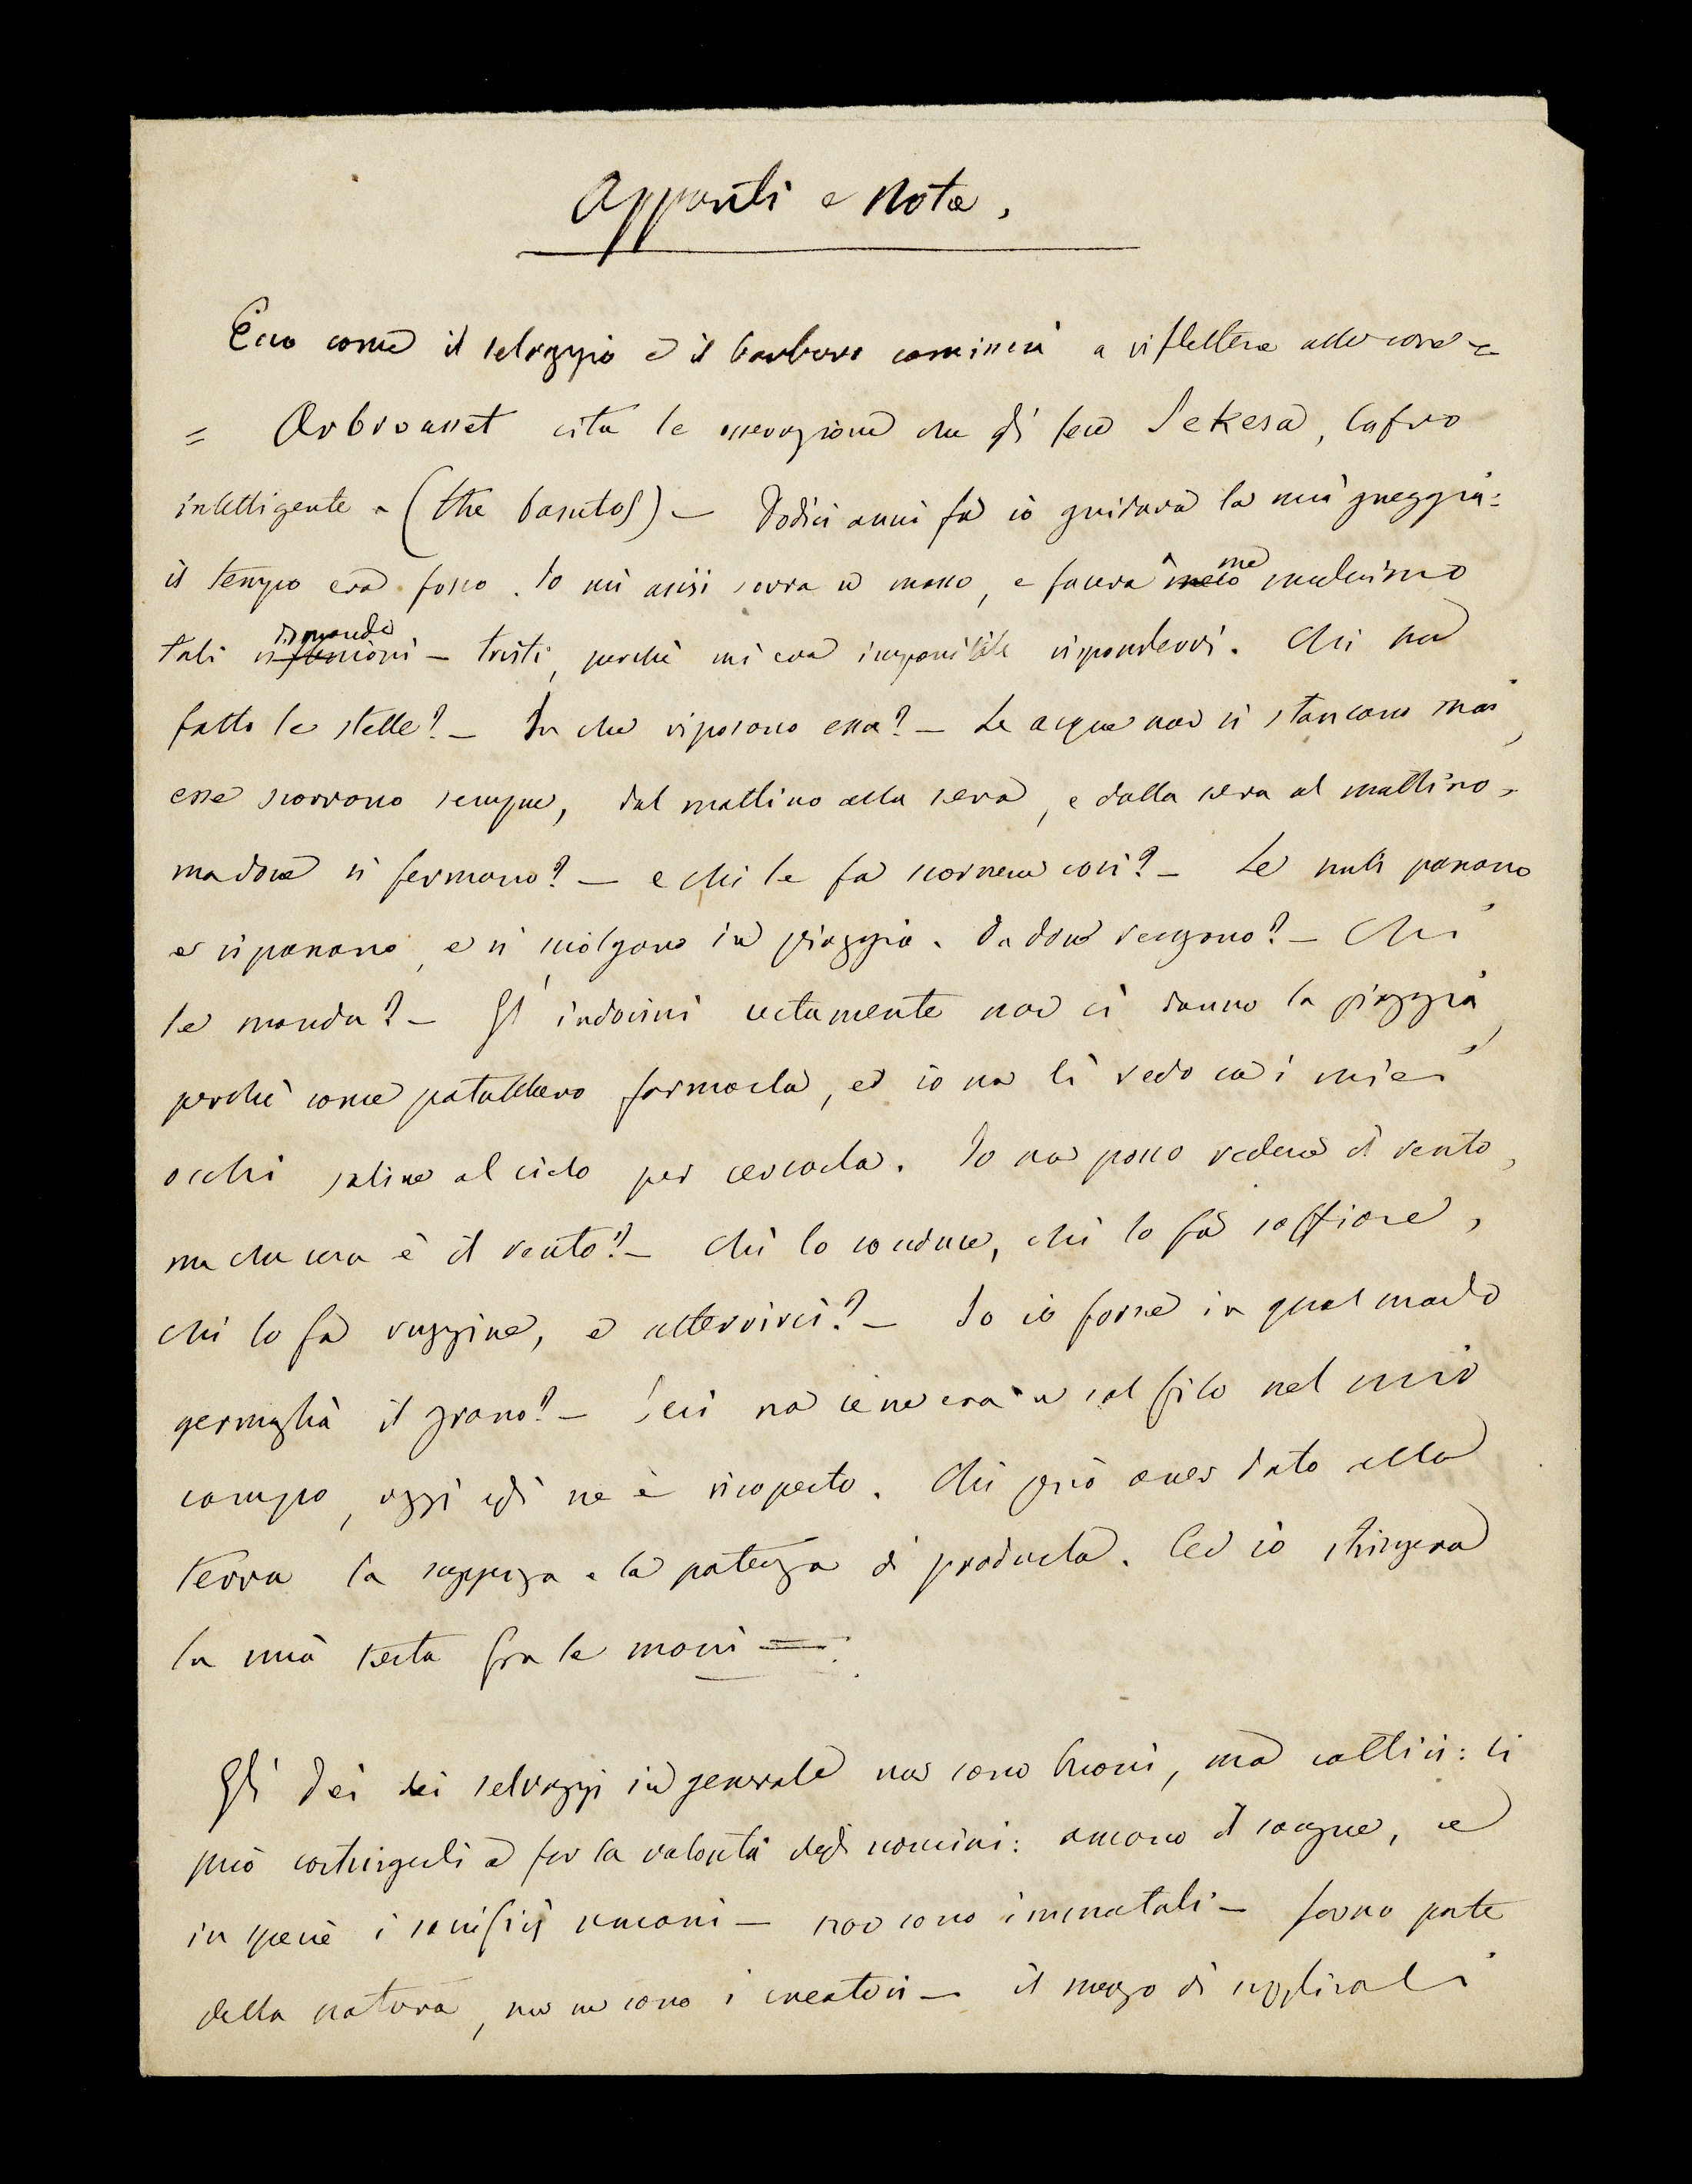 Appunti e Note.
Ecco come il selvaggio e il barbaro comincia a riflettere alle cose =
= Arbrousset cita le osservazione che gli fece Sekesa, Cafro
intelligente = (the basutos) — Dodici anni fa io guidava la mia greggia:
il tempo era fosco. Io mi assisi sovra un masso, e faceva a me medesimo
tali dimande — tristi, perchè mi era impossibile rispondervi. Chi ha
fatto le stelle? — Su che riposono esse? — Le acque non si stancano mai,
esse scorrono sempre, dal mattino alla sera, e dalla sera al mattino,
ma dove si fermano? — e chi le fa scorrere così? — Le nubi passano
e ripassano, e si sciolgono in pioggia. Da dove vengono? — Chi
le manda? — Gl'indovini certamente non ci danno la pioggia,
perchè come potrebbero formarla, ed io non li vedo coi miei
occhi salire al cielo per cercarla. Io non posso vedere il vento,
ma che cosa è il vento? — Chi lo conduce, chi lo fa soffiare,
chi lo fa ruggire, e atterrirci? — So io forse in qual modo
germoglia il grano? — Ieri non ce ne era un sol filo nel mio
campo, oggi egli ne è ricoperto. Chi può aver dato alla
terra la saggezza e la potenza di produrla. Ed io stringeva
la mia testa fra le mani =
Gli Dei dei selvaggi in generale non sono buoni, ma cattivi: si
può costringerli a far la volontà degli uomini: amano il sangue, e
in specie i sacrifici umani — non sono immortali — fanno parte
della natura, non ne sono i creatori — il mezzo di supplicarli